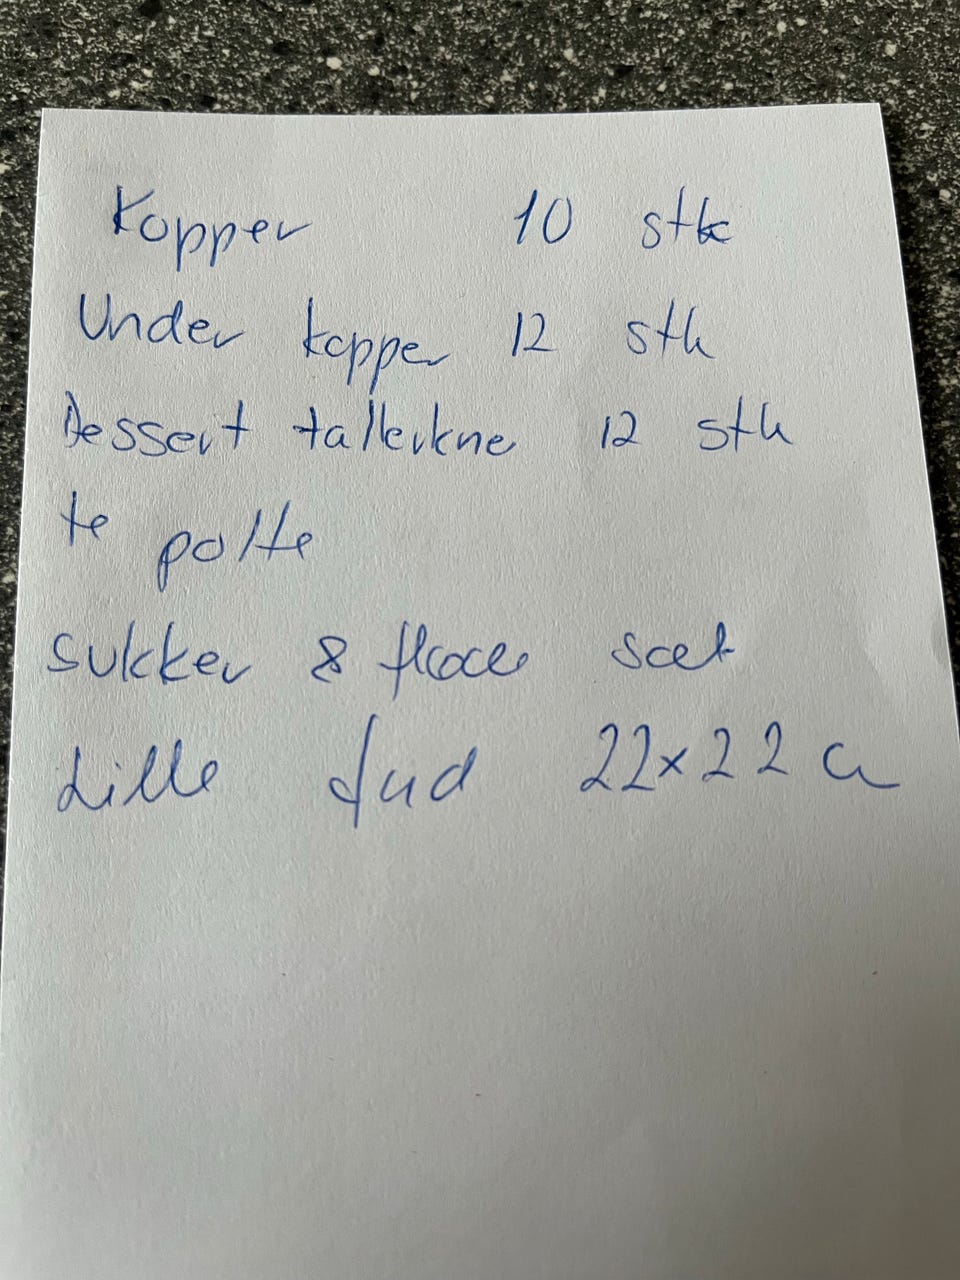 Kopper 10 stk
Under kopper 12 stk
Dessert tallerkne 12 stk
te potte
sukker & fløde sæt
Lille fad 22x22 c